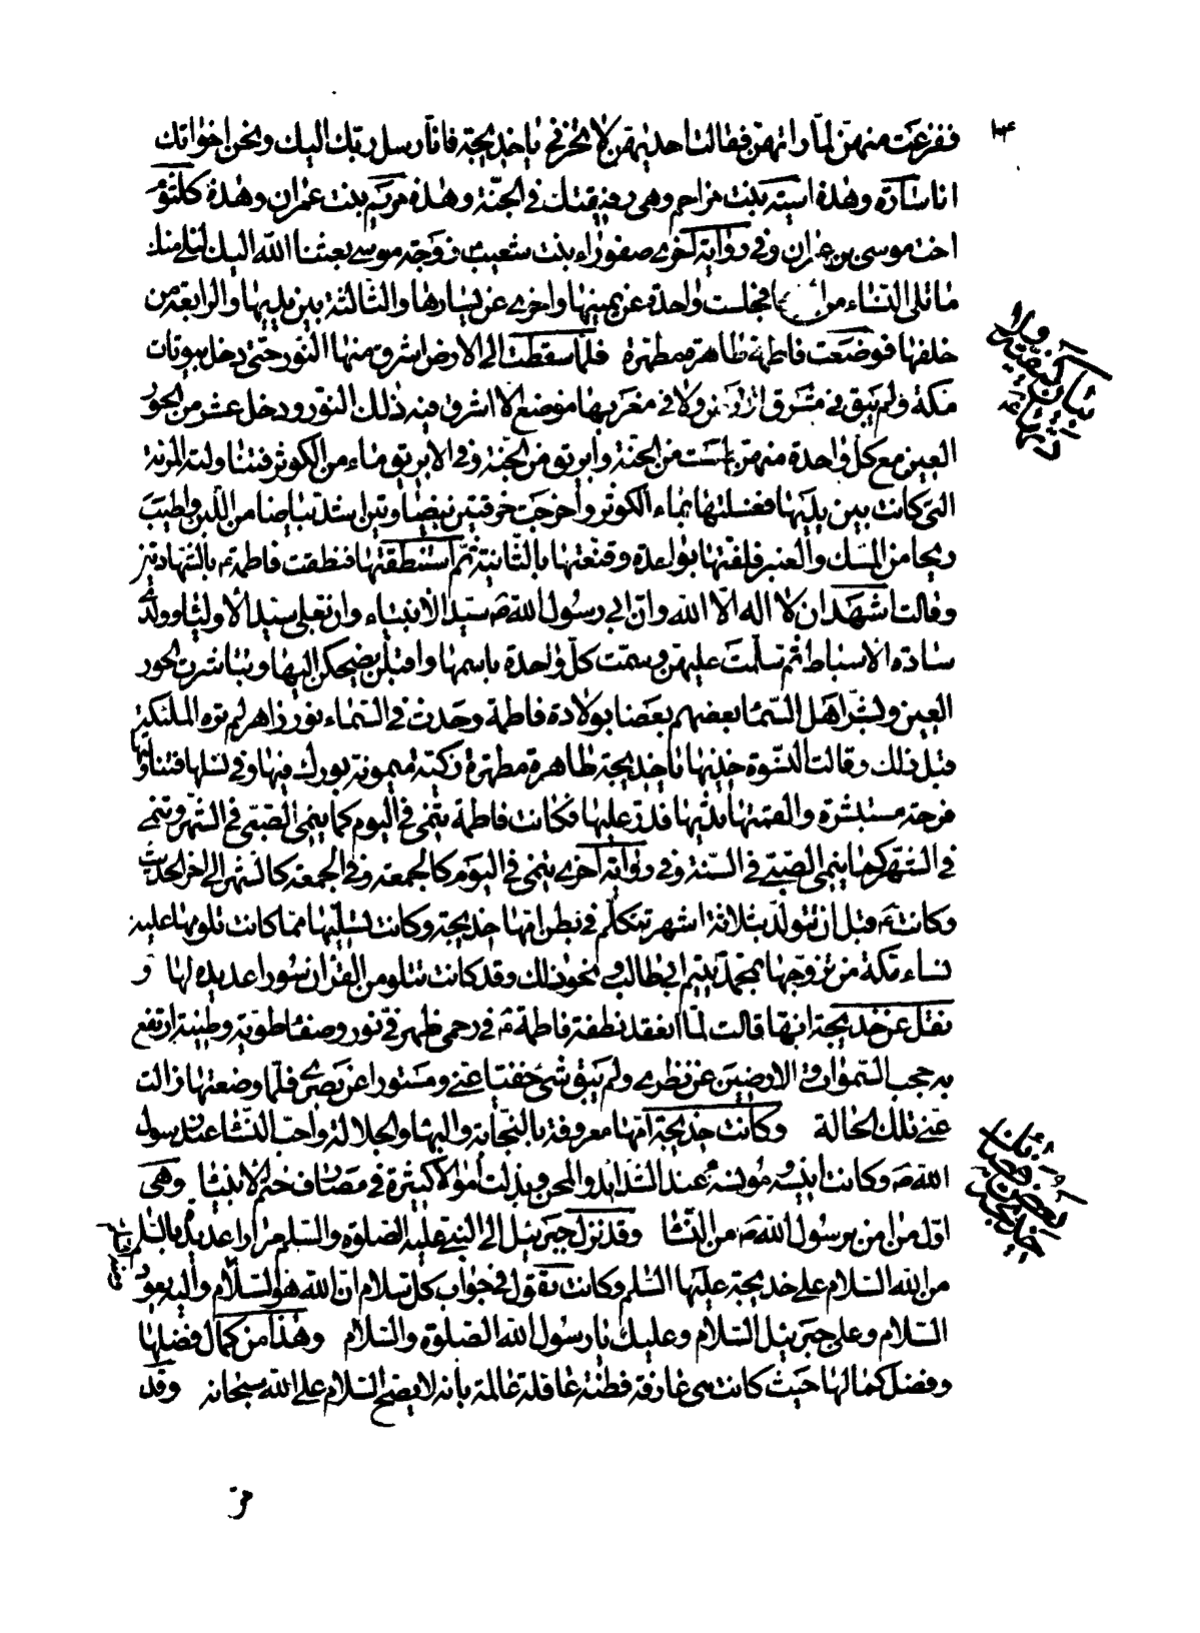 ففزعت منهن لما راتهن فقالت احديهن لا تحزنى يا خديجة فانا رسل ربك اليك ونحن اخواتك
انا سارة وهذه اسية بنت مزاحم وهى رفيقتك فى الجنة وهذه مريم بنت عمران وهذه كلثوم
اخت موسى بن عمران وفى رواية اخرى صفوراء بنت شعيب زوجة موسى بعثنا الله اليك لنلى منك
ما تلى النساء من فجلست واحدة عن يمينها واخرى عن يسارها والثالثة بين يديها والرابعة من
خلفها فوضعت فاطمة طاهرة مطهرة فلما سقطت الى الارض اشرق منها النور حتى دخل بيوتات
مكة ولم يبق فى مشرق الارض ولا فى مغربها موضع الا اشرق فيه ذلك النور ودخل عشر من الحور
العين مع كل واحدة منهن طست من الجنة وابريق من الجنة وفى الابريق ماء من الكوثر فتناولته المرئة
التى كانت بين يديها فغسلتها بماء الكوثر واخرجت خرقتين بيضاوتين اشد بياضا من اللبن واطيب
ريحا من المسك والعنبر فلفتها بواحدة وقنعتها بالثانية ثم استنطقتها فنطقت فاطمة ع بالشهادتين
وقالت اشهد ان لا اله الا الله وان ابى رسول الله ص سيد الانبياء وان بعلى سيد الاولياء وولدى
سادة الاسباط ثم سلمت عليهن وسمت كل واحدة باسمها واقبلن يضحكن اليها وتباشرت الحور
العين وبشر اهل السماء بعضهم بعضا بولادة فاطمة وحدث فى السماء نور زاهر لم تره الملئكة
قبل ذلك وقالت النسوة خذيها يا خديجة طاهرة مطهرة زكية ميمونة بورك فيها وفى نسلها فتناولتها
فرحة مستبشرة والقمتها ثديها فدر عليها فكانت فاطمة تنمى فى اليوم كما ينمى الصبى فى الشهر وتنمى
فى الشهر كما ينمى الصبى فى السنة وفى رواية اخرى تنمى فى اليوم كالجمعة وفى الجمعة كالشهر الى اخر الحديث
وكانت ع قبل ان تتولد بثلاثة اشهر تتكلم فى بطن امها خديجة وكانت تسليها مما كانت تلومها عليه
نساء مكة من تزوجها بمحمد يتيم ابى طالب ونحو ذلك وقد كانت تتلو من القران سورا عديدة لها و
نقل عن خديجة انها قالت لما انعقد نطفة فاطمة ع فى رحمى ظهر فى نور وصفاء طوية وطينة ارتفع
به حجب السموات والارضين عن نظرى ولم يبق شىء خفيا عنى ومستورا عن بصرى فلما وضعتها زالت
عنى تلك الحالة وكانت خديجة امها معروفة بالنجابة والبهاء والجلالة واحب النساء عند رسول
الله ص وكانت انيسة ومونسة عند الشدايد والمحن وبذلت اموالا كثيرة فى مصارف ختم الانبياء وهى
اول من امن برسول الله ص من النساء وقد نزل جبرئيل الى النبى عليه الصلوة والسلم مرارا عديدة بالسلم
من الله السلام على خديجة عليها السلم وكانت تقول فى جواب كل سلام ان الله هو السلام واليه يعود
السلام وعلى جبرئيل السلام وعليك يا رسول الله الصلوة والسلام وهذا من كمال فضلها
وفضل كمالها حيث كانت هى عارفة فطنة عاقلة عالمة بانه لا يصح السلام على الله سبحانه وقد